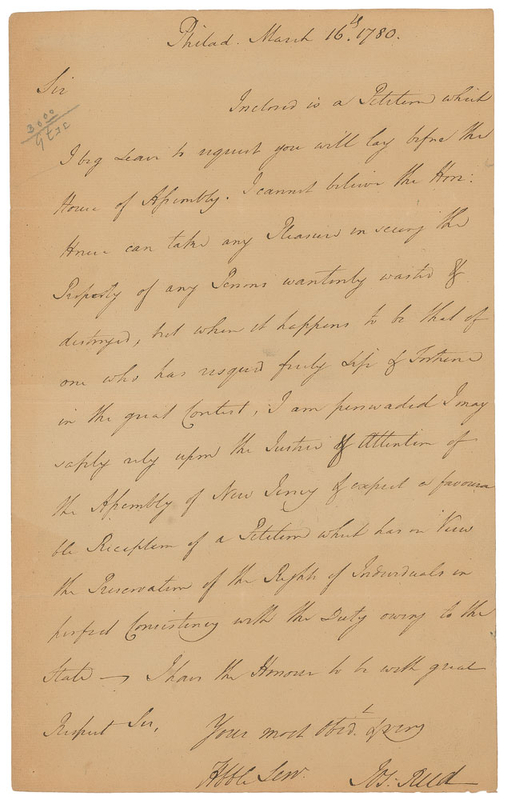 Philad. March 16th, 1780.
Sir
3000
Inclosed is a Petition which
I beg Leave to request you will lay before the
House of Assembly. I cannot believe the Hon:
House can take any Pleasure in seeing the
Property of any Persons wantonly wasted &
destroyed, but when it happens to be that of
one who has risqued freely Life & Fortune
in the great Contest, I am perswaded I may
safely rely upon the Justice & Attention of
the Assembly of New Jersey & expect a favoura
ble Reception of a Petition which has in View
the Preservation of the Rights of Individuals in
perfect Consistency with the Duty owing to the
State — I have the Honour to be with great
Respect Sir, Your most Obed.t & very
Hbble Serv. Jos: Reed